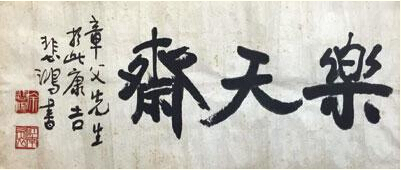 樂天齋
章父先生
於此康吉
悲鴻書